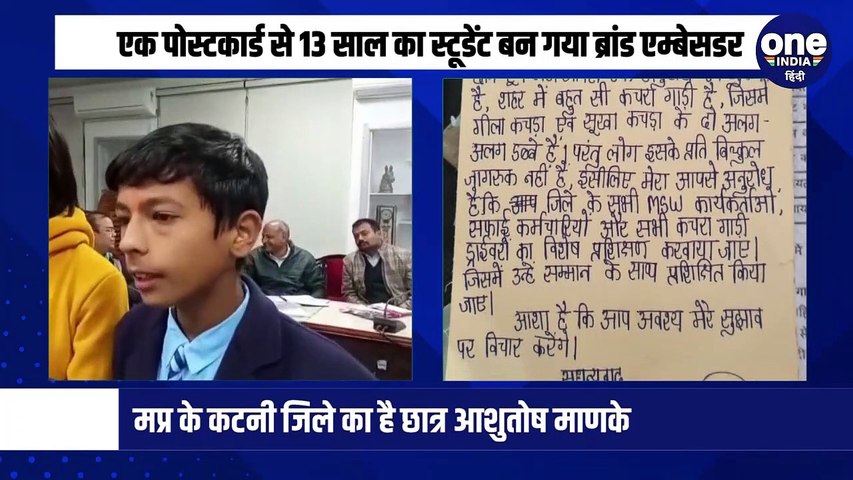 एक पोस्टकार्ड से 13 साल का स्टूडेंट बन गया ब्रांड एम्बेसडर
one
INDIA
हिंदी
है, शहर में बहुत सी कचरा गाड़ी है, जिसमें
गीला कचड़ा एवं सूखा कचड़ा के दो अलग-
अलग डब्बे है। परंतु लोग इसके प्रति बिल्कुल
जागरूक नहीं हैं, इसीलिए मेरा आपसे अनुरोध
है कि जिले के सभी MSW कार्यकर्ताओं,
सफाई कर्मचारियों और सभी कचरा गाड़ी
ड्राईवरों का विशेष प्रशिक्षण करवाया जाए।
जिसमें उन्हें सम्मान के साथ प्रशिक्षित किया
जाए।
आशा है कि आप अवश्य मेरे सुझाव
पर विचार करेंगे।
मप्र के कटनी जिले का है छात्र आशुतोष माणके